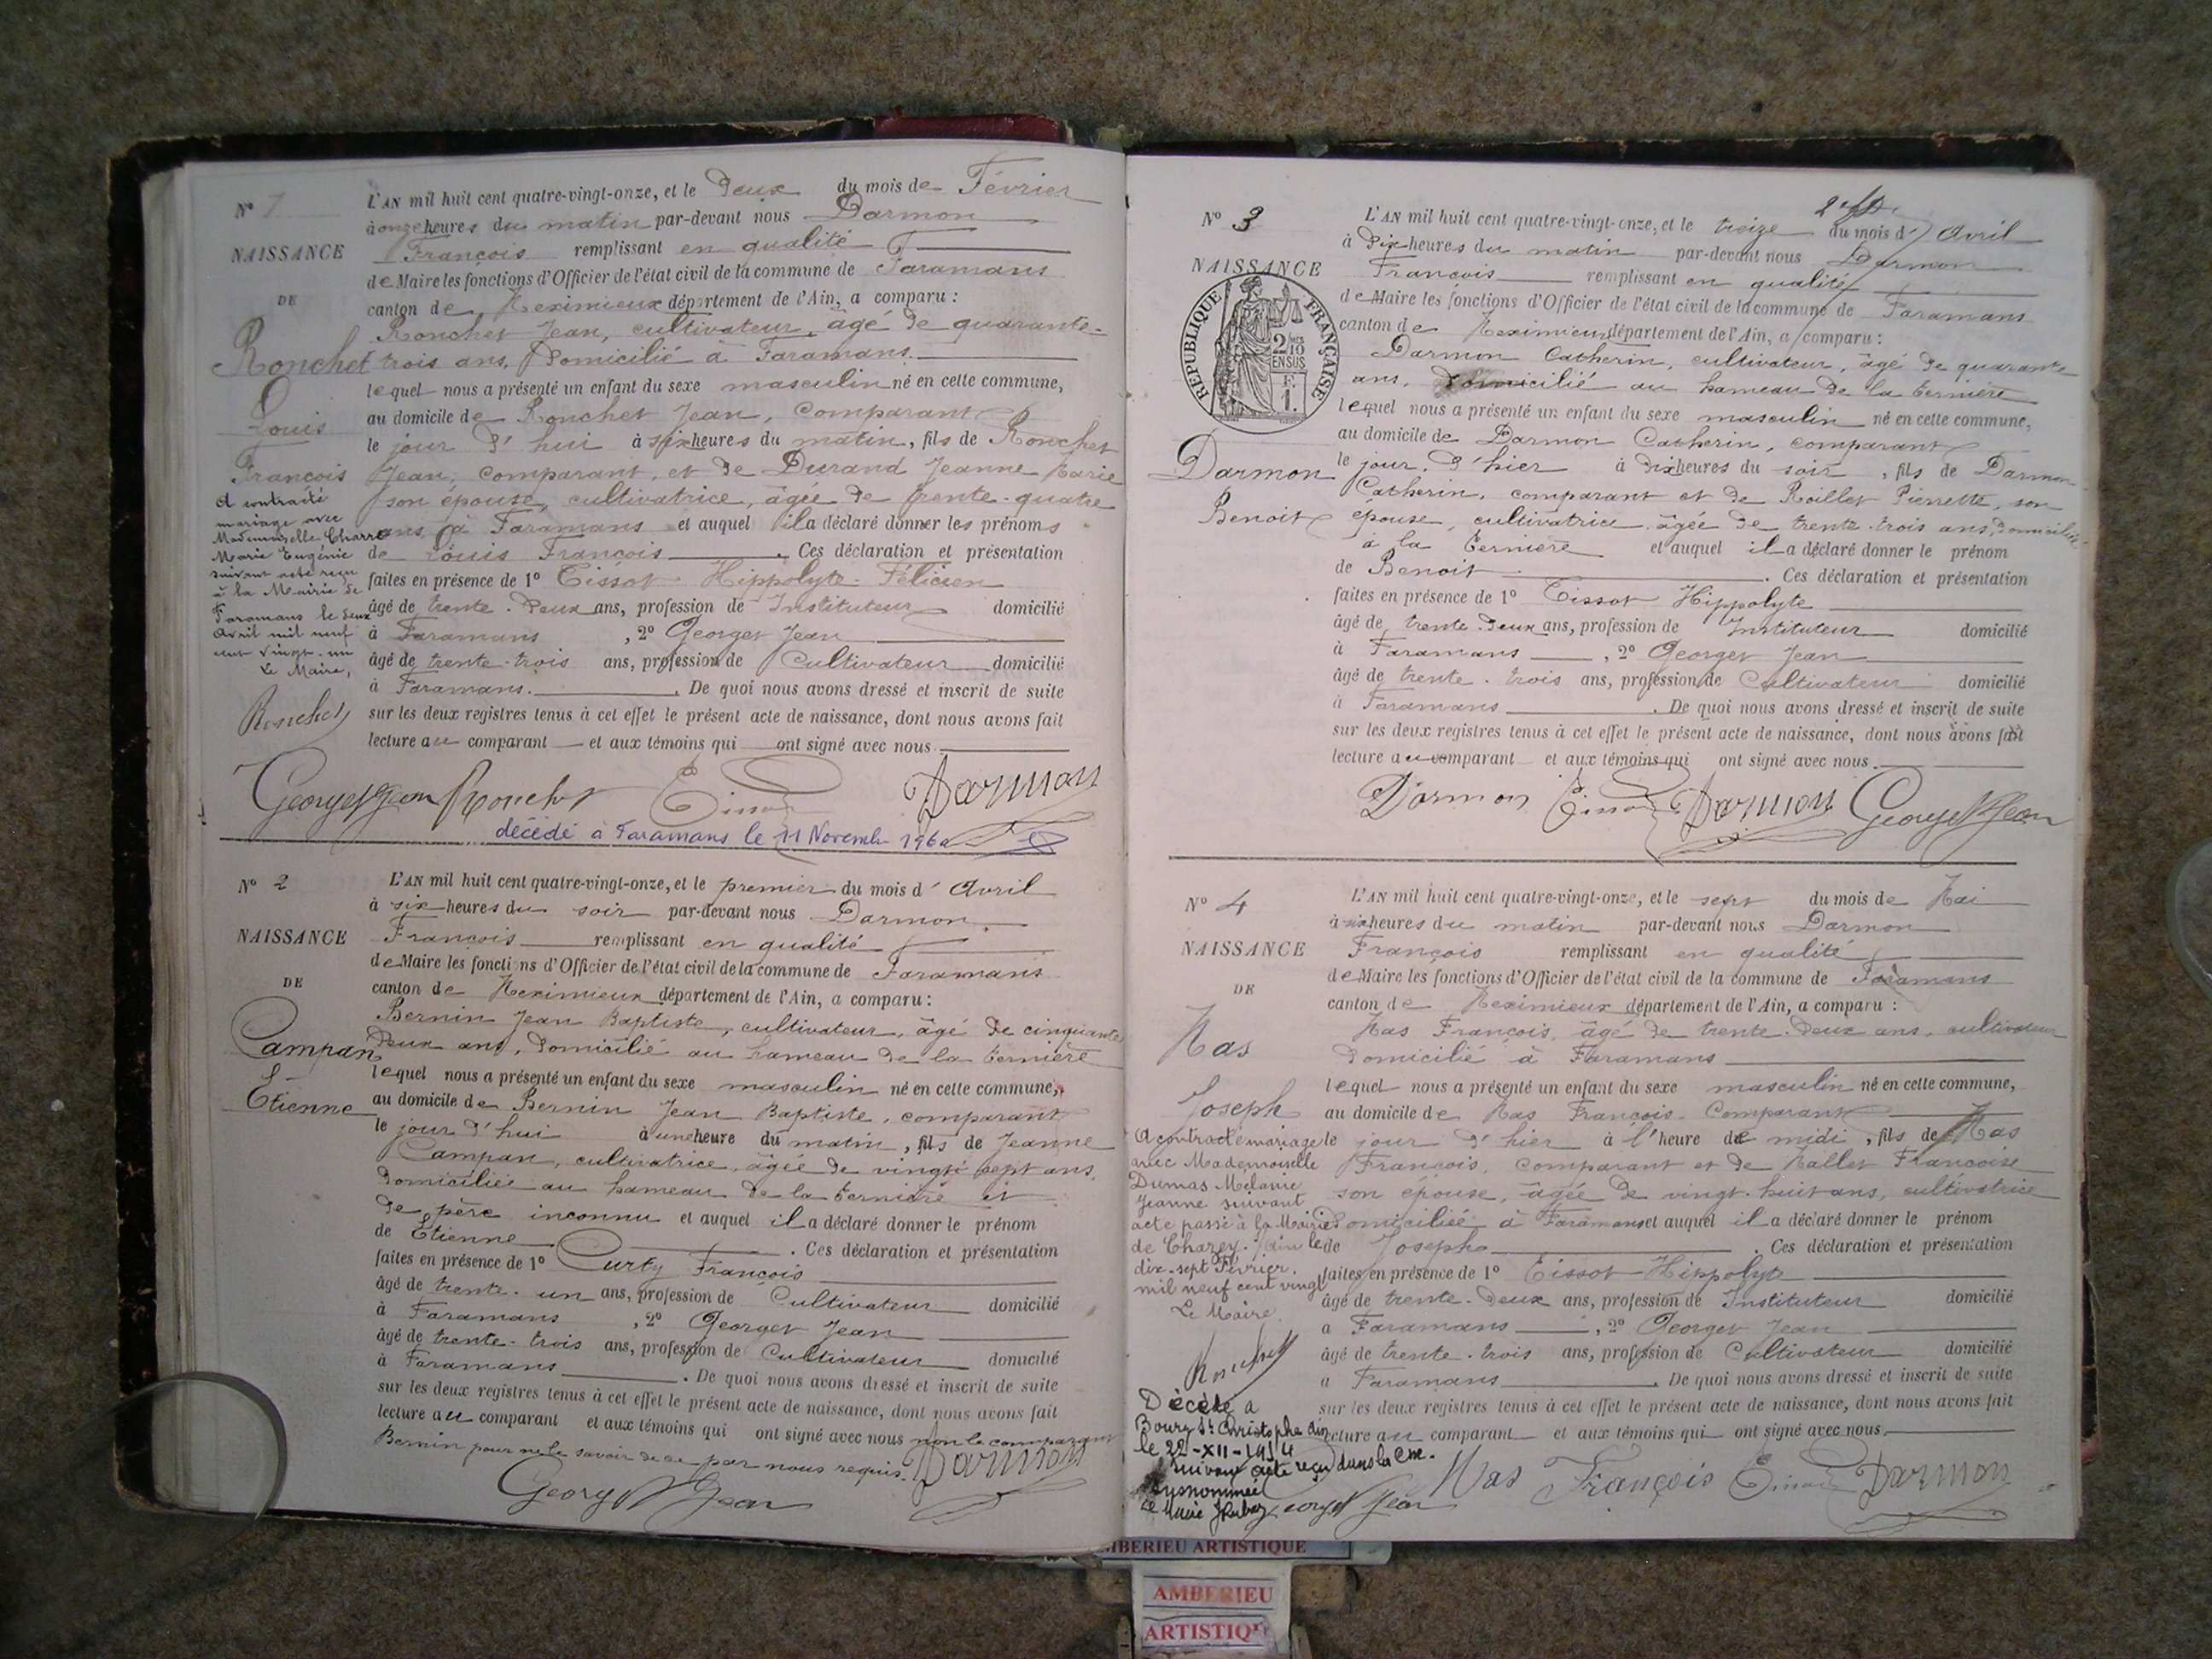 N° 1
NAISSANCE
DE
Ronchet
Louis
François
A contracté
mariage avec
Mademoiselle Charre
Marie Eugénie
suivant acte reçu
à la Mairie de
Faramans le deux
avril mil neuf
cent vingt-un
Le Maire,
Ronchet
L'AN mil huit cent quatre-vingt-onze, et le deux du mois de Février
à onze heures du matin par-devant nous Darmon
François remplissant en qualité
de Maire les fonctions d'Officier de l'état civil de la commune de Faramans
canton de Meximieux département de l'Ain, a comparu :
Ronchet Jean, cultivateur, âgé de quarante-
trois ans, domicilié à Faramans.
lequel nous a présenté un enfant du sexe masculin né en cette commune,
au domicile de Ronchet Jean, comparant
le jour d'hui à six heures du matin, fils de Ronchet
Jean, comparant, et de Durand Jeanne Marie
son épouse, cultivatrice, âgée de trente-quatre
ans, à Faramans et auquel il a déclaré donner les prénoms
de Louis François. Ces déclaration et présentation
faites en présence de 1° Tissot Hippolyte Félicien
âgé de trente-deux ans, profession de Instituteur domicilié
à Faramans, 2° Georget Jean
âgé de trente-trois ans, profession de Cultivateur domicilié
à Faramans. De quoi nous avons dressé et inscrit de suite
sur les deux registres tenus à cet effet le présent acte de naissance, dont nous avons fait
lecture au comparant et aux témoins qui ont signé avec nous.
Georget Jean Ronchet Tissot Darmon
décédé à Faramans le 11 Novembre 1960
N° 2
NAISSANCE
DE
Campan
Etienne
L'AN mil huit cent quatre-vingt-onze, et le premier du mois d'Avril
à six heures du soir par-devant nous Darmon
François remplissant en qualité
de Maire les fonctions d'Officier de l'état civil de la commune de Faramans
canton de Meximieux département de l'Ain, a comparu :
Bernin Jean Baptiste, cultivateur, âgé de cinquante
deux ans, domicilié au hameau de la Bernière
lequel nous a présenté un enfant du sexe masculin né en cette commune,
au domicile de Bernin Jean Baptiste, comparant
le jour d'hui à une heure du matin, fils de Jeanne
Campan, cultivatrice, âgée de vingt sept ans,
domiciliée au hameau de la Bernière et
de père inconnu et auquel il a déclaré donner le prénom
de Etienne. Ces déclaration et présentation
faites en présence de 1° Curty François
âgé de trente-un ans, profession de Cultivateur domicilié
à Faramans, 2° Georget Jean
âgé de trente-trois ans, profession de Cultivateur domicilié
à Faramans. De quoi nous avons dressé et inscrit de suite
sur les deux registres tenus à cet effet le présent acte de naissance, dont nous avons fait
lecture au comparant et aux témoins qui ont signé avec nous non le comparant
Bernin pour ne le savoir de ce par nous requis. Darmon
Georget Jean
N° 3
NAISSANCE
RÉPUBLIQUE FRANÇAISE
2/10
EN SUS
F.
1.
Darmon
Benoit
L'AN mil huit cent quatre-vingt-onze, et le treize du mois d'Avril
à dix heures du matin par-devant nous Darmon
François remplissant en qualité
de Maire les fonctions d'Officier de l'état civil de la commune de Faramans
canton de Meximieux département de l'Ain, a comparu :
Darmon Catherin, cultivateur, âgé de quarante
ans, domicilié au hameau de la Bernière
lequel nous a présenté un enfant du sexe masculin né en cette commune,
au domicile de Darmon Catherin, comparant
le jour d'hier à dix heures du soir, fils de Darmon
Catherin, comparant et de Roillet Pierrette, son
épouse, cultivatrice, âgée de trente-trois ans, domiciliée
à la Bernière et auquel il a déclaré donner le prénom
de Benoit. Ces déclaration et présentation
faites en présence de 1° Tissot Hippolyte
âgé de trente-deux ans, profession de Instituteur domicilié
à Faramans, 2° Georget Jean
âgé de trente-trois ans, profession de Cultivateur domicilié
à Faramans. De quoi nous avons dressé et inscrit de suite
sur les deux registres tenus à cet effet le présent acte de naissance, dont nous avons fait
lecture au comparant et aux témoins qui ont signé avec nous.
Darmon Tissot Darmon Georget Jean
N° 4
NAISSANCE
DE
Mas
Joseph
A contracté mariage
avec Mademoiselle
Dumas Mélanie
Jeanne suivant
acte passé à la Mairie
de Charex (Ain) le
dix-sept Février
mil neuf cent vingt
Le Maire
Ronchet
Décédé à
Bourg St Christophe Ain
le 22-XII-1954
suivant acte reçu dans la Cne.
susnommée
Le Maire
L'AN mil huit cent quatre-vingt-onze, et le sept du mois de Mai
à six heures du matin par-devant nous Darmon
François remplissant en qualité
de Maire les fonctions d'Officier de l'état civil de la commune de Faramans
canton de Meximieux département de l'Ain, a comparu :
Mas François, âgé de trente-deux ans, cultivateur
domicilié à Faramans
lequel nous a présenté un enfant du sexe masculin né en cette commune,
au domicile de Mas François Comparant
le jour d'hier à l'heure de midi, fils de Mas
François, comparant et de Mallet Françoise
son épouse, âgée de vingt-huit ans, cultivatrice
domiciliée à Faramans et auquel il a déclaré donner le prénom
de Joseph. Ces déclaration et présentation
faites en présence de 1° Tissot Hippolyte
âgé de trente-deux ans, profession de Instituteur domicilié
à Faramans, 2° Georget Jean
âgé de trente-trois ans, profession de Cultivateur domicilié
à Faramans. De quoi nous avons dressé et inscrit de suite
sur les deux registres tenus à cet effet le présent acte de naissance, dont nous avons fait
lecture au comparant et aux témoins qui ont signé avec nous.
Georget Jean Mas François Tissot Darmon
AMBERIEU ARTISTIQUE
AMBERIEU
ARTISTIQUE